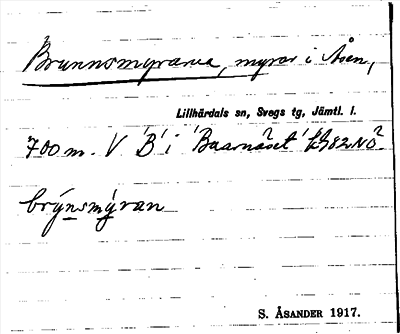 Brunnsmyrarna, myrar i Åsen,
Lillhärdals sn, Svegs tg, Jämtl. l.
700 m. V 'B' i 'Baarnåset'
brýnsmýran
S. ÅSANDER 1917.